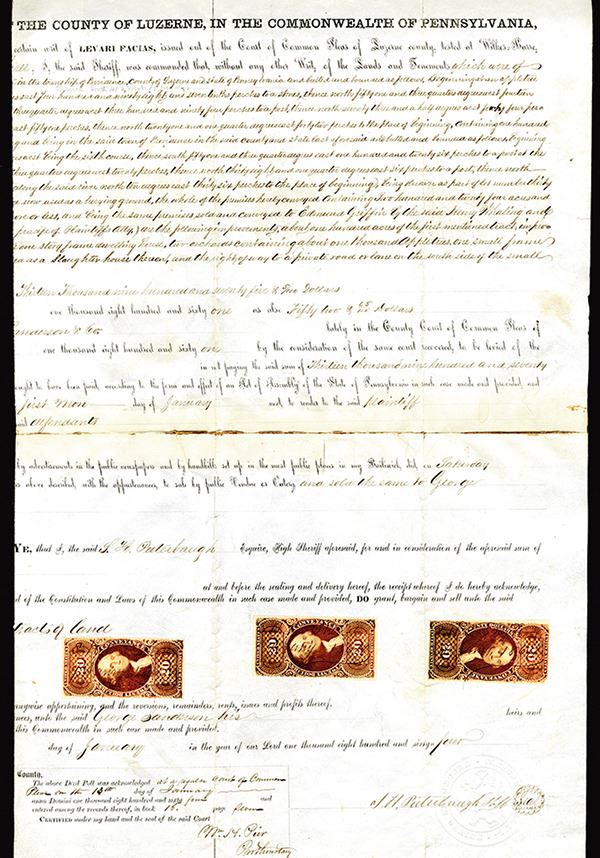 THE COUNTY OF LUZERNE, IN THE COMMONWEALTH OF PENNSYLVANIA,
certain writ of LEVARI FACIAS, issued out of the Court of Common Pleas of Luzerne county, tested at Wilkes-Barre,
I, the said Sheriff, was commanded that, without any other Writ, of the Lands and Tenements which were of
in the township of Providence, County of Luzerne and State of Pennsylvania and butted and bounded as follows, Beginning
west four hundred and ninety eight and seven tenths perches to a stones, thence north fifty one and three quarter degrees west fourteen
three quarter degrees west three hundred and ninety four perches to a post, thence north seventy three and a half degrees west forty four
east fifty one perches, thence north twenty one and one quarter degrees east forty two perches to the place of beginning, Containing one hundred
and being in the said town of Providence in the said county and state last aforesaid and butted and bounded as follows, beginning
west being the sixth course, thence south fifty one and three quarter degrees east one hundred and twenty six perches to a post at the
three quarter degrees west twenty perches, thence north thirty eight and one quarter degrees east six perches to a post, thence north
along the said line north ten degrees east thirty six perches to the place of beginning, being known as part of lot number thirty
now used as a burying ground, the whole of the premises hereby conveyed Containing two hundred and twenty four acres and
or less, and being the same premises sold and conveyed to Edmund Griffin by the said Henry Whaling and
of Plaintiffs Atty,) are the following improvements, about one hundred acres of the first mentioned tract,
one story frame dwelling house, two orchards containing about one thousand Apple trees, one small frame
as a Slaughter house thereon, and the right of way to a private road or lane on the south side of the small
Thirteen Thousand nine hundred and seventy five & Dollars
one thousand eight hundred and sixty one as also Fifty two & 25 Dollars
Sanderson & Co lately in the County Court of Common Pleas of
one thousand eight hundred and sixty one by the consideration of the same court recovered, to be levied of the
in not paying the said sum of Thirteen thousand nine hundred and seventy
ought to have been paid, according to the form and effect of an Act of Assembly of the State of Pennsylvania in such case made and provided, and
first Mon day of January and, to render to the said plaintiff
defendants
by advertisements in the public newspapers and by handbills set up in the most public places in my Bailiwick, did, on Saturday
above described, with the appurtenances, to sale by public Vendue or Outcry and sold the same to George
YE, that I, the said S. H. Puterbaugh Esquire, High Sheriff aforesaid, for and in consideration of the aforesaid sum of
at and before the sealing and delivery hereof, the receipt whereof I do hereby acknowledge,
of the Constitution and Laws of this Commonwealth in such case made and provided, DO grant, bargain and sell unto the said
tracts of land
CONVEYANCE
CONVEYANCE
CONVEYANCE
anywise appertaining, and the reversions, remainders, rents, issues and profits thereof.
unto the said George Sanderson his heirs and
this Commonwealth in such case made and provided.
day of January in the year of our Lord one thousand eight hundred and sixty four
County,
The above Deed Poll was acknowledged at a regular Court of Common
Pleas on the 13th day of January
Anno Domini one thousand eight hundred and sixty four and
entered among the records thereof, in book 16. page
CERTIFIED under my hand and the seal of the said Court
S. H. Puterbaugh
Prothonotary